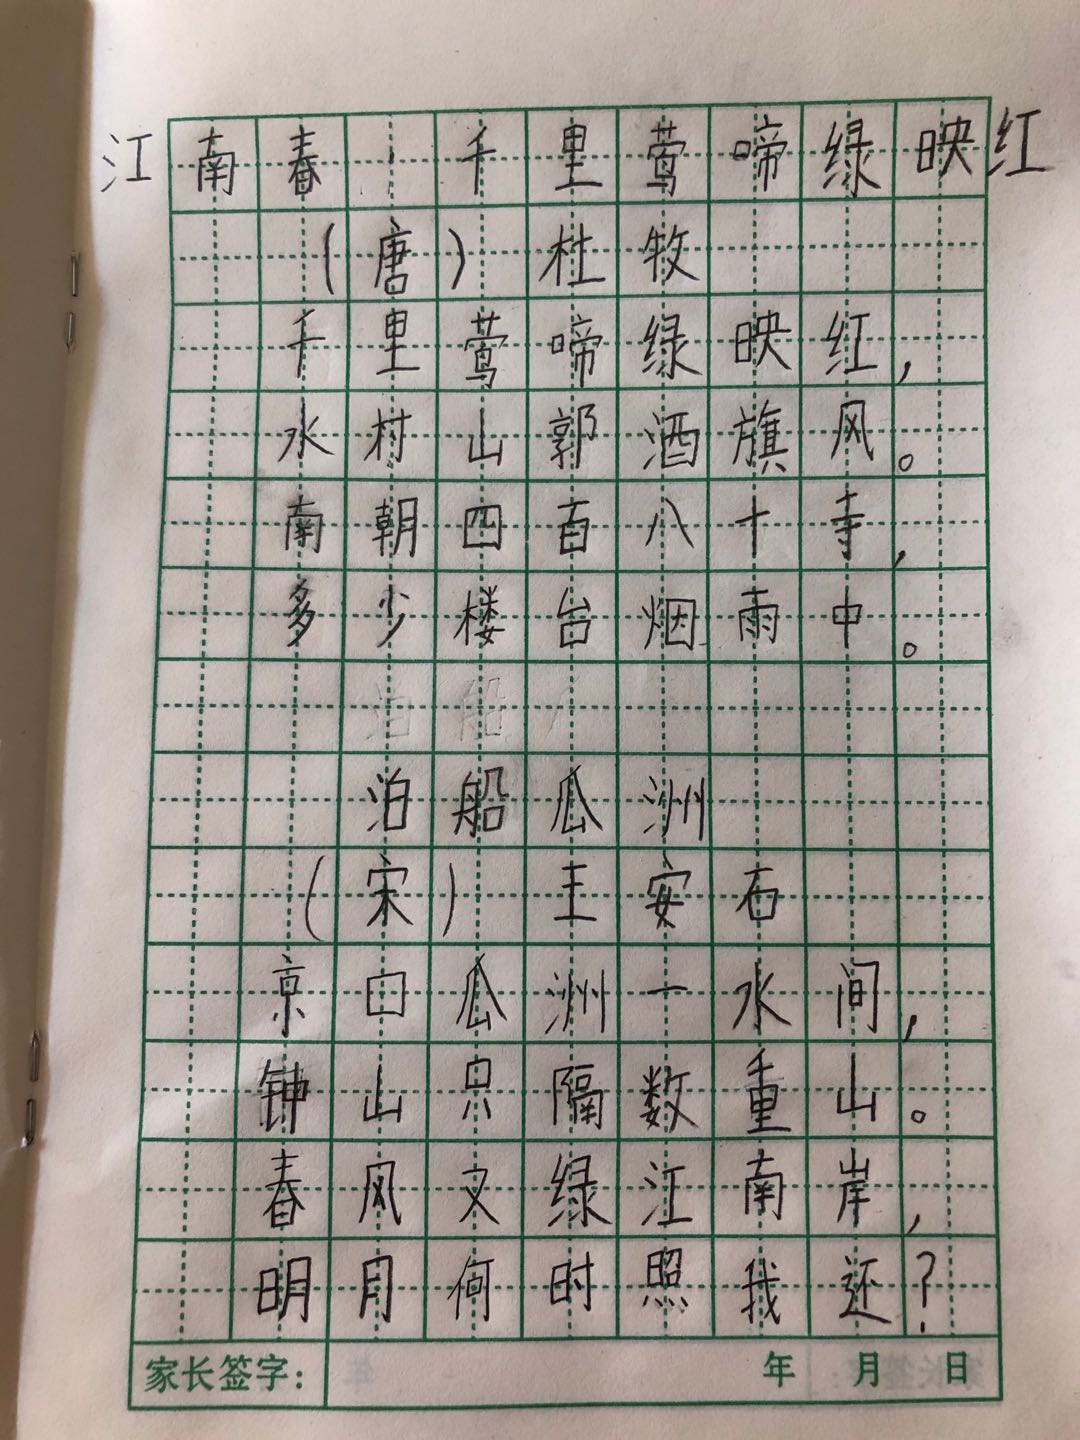 江南春·千里莺啼绿映红
(唐) 杜牧
千里莺啼绿映红,
水村山郭酒旗风。
南朝四百八十寺,
多少楼台烟雨中。
泊船
泊船瓜洲
(宋) 王安石
京口瓜洲一水间,
钟山只隔数重山。
春风又绿江南岸,
明月何时照我还?
家长签字: 年 月 日